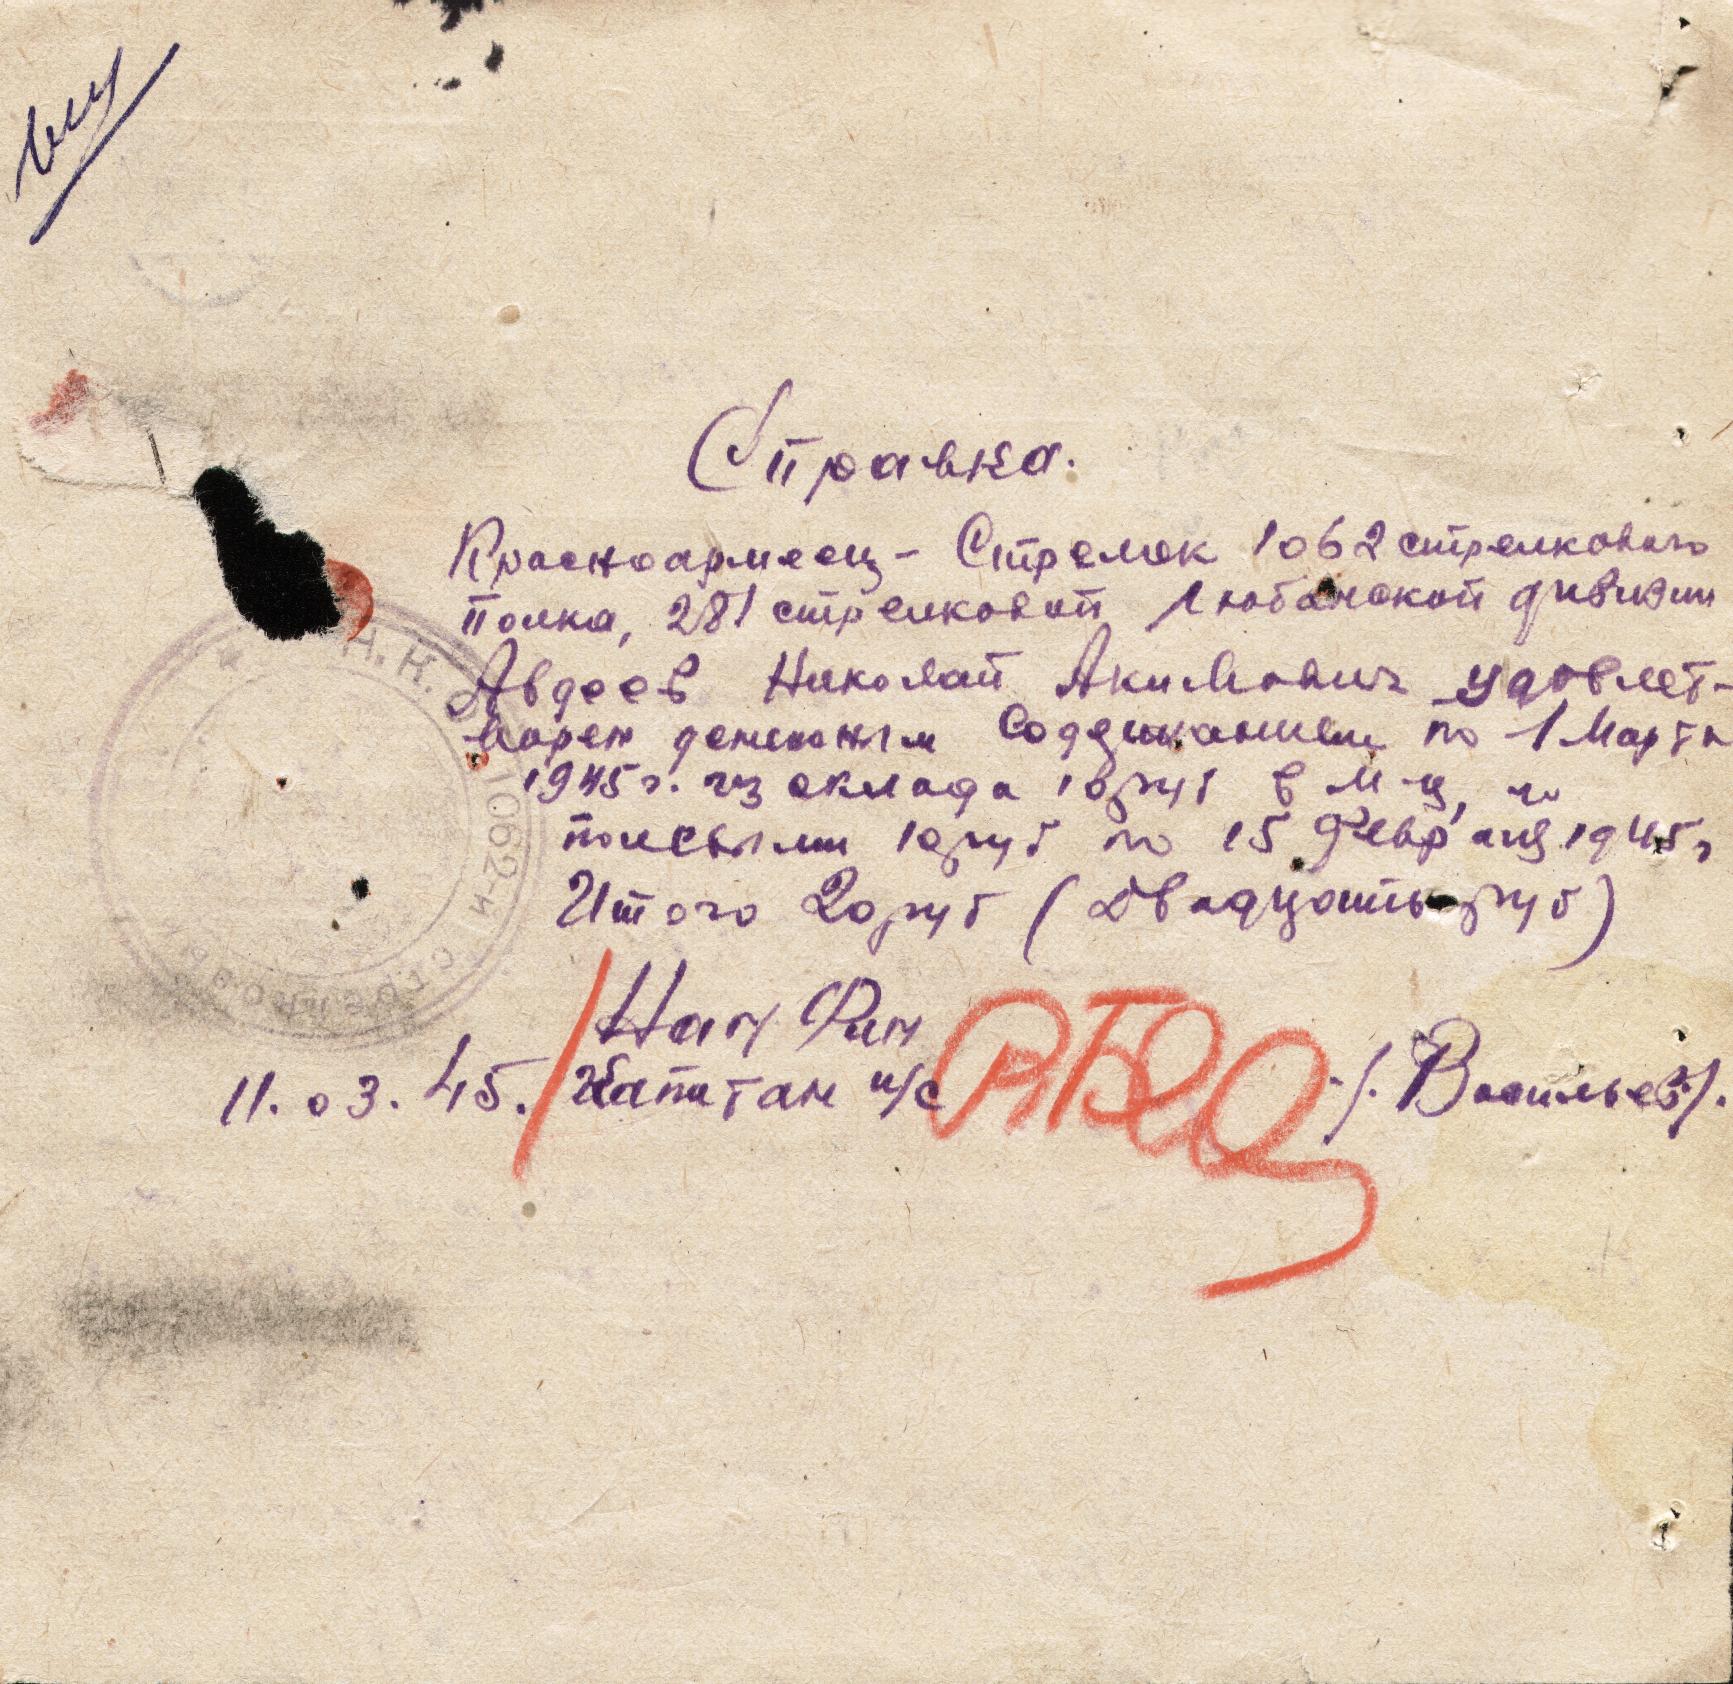 Справка.
Красноармеец - Стрелок 1062 стрелкового
полка, 281 стрелковой Любанской дивизии
Авдеев Николай Акимович удовлет-
ворен денежным Содержанием по 1 Марта
1945г. из оклада 10 руб в м-ц, и
полевыми 10 руб по 15 Февраля 1945г
Итого 20 руб (Двадцать руб)
Нач Фин
11.03.45. Капитан и/с /. Васильев /.
Н.К.О. 1062-й стрелковый